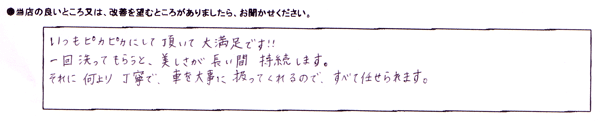 ●当店の良いところ又は、改善を望むところがありましたら、お聞かせください。
いつもピカピカにして頂いて大満足です!!
一回洗ってもらうと、美しさが長い間持続します。
それに何より丁寧で、車を大事に扱ってくれるので、すべて任せられます。